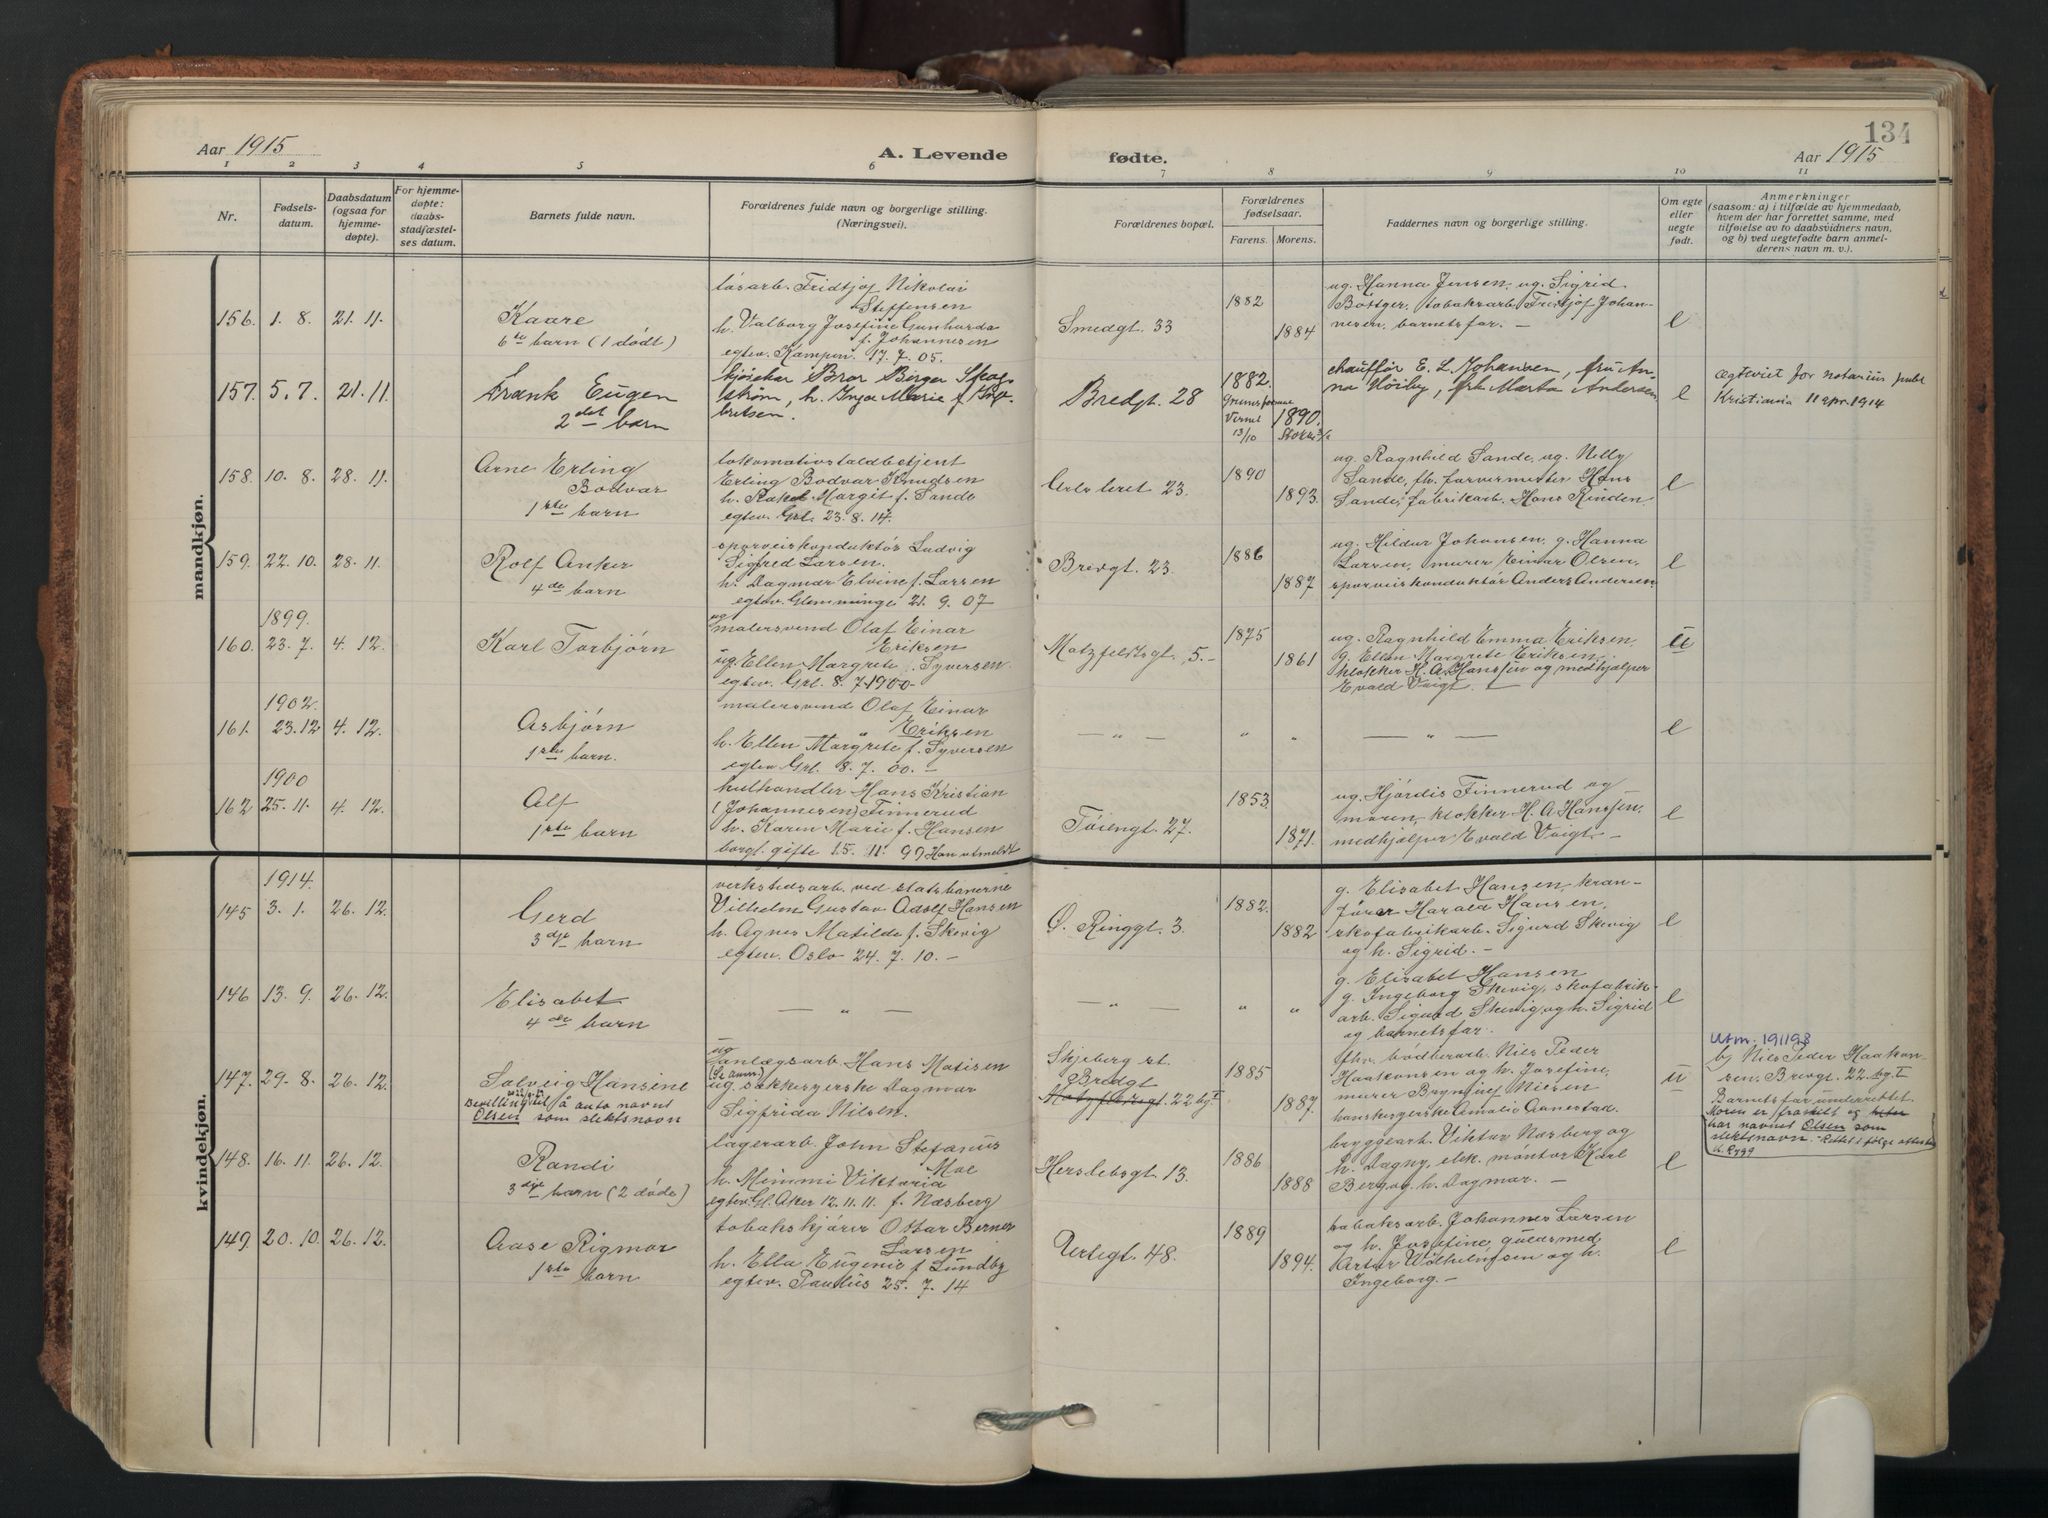 134
Aar 1915
A. Levende
fødte.
Aar 1915
1 2 3 4 5 6 7 8 9 10 11
Nr.
Fødsels-
datum.
Daabsdatum
(ogsaa for
hjemme-
døpte).
For hjemme-
døpte:
daabs-
stadfæstel-
ses datum.
Barnets fulde navn.
Forældrenes fulde navn og borgerlige stilling.
(Næringsvei).
Forældrenes bopæl.
Forældrenes
fødselsaar.
Farens. Morens.
Faddernes navn og borgerlige stilling.
Om egte
eller
uegte
født.
Anmerkninger
(saasom: a) i tilfælde av hjemmedaab,
hvem der har forrettet samme, med
tilføielse av to daabsvidners navn,
og b) ved uegtefødte barn anmel-
derens navn m. v.).
mandkjøn.
156. 1. 8. 21. 11.
Kaare
6te barn (1 dødt)
løsarb. Fridtjof Nikolai
Steffensen
h. Valborg Josefine Gunharda
f. Johannesen
egtev. Kampen. 17. 7. 05.
Smedgt. 33
1882
1884
ug. Hanna Jensen, ug. Sigrid
Böttger, tobaksarb. Fritjof Johan-
nesen, barnets far. —
e
157. 5. 7. 21. 11.
Frank Eugen
2det barn
Bror Berger Skog-
ström, h. Inga Marie f. Inge-
bretsen.
Bredgt. 28
1882.
13/10
1890.
chauffør E. L. Johansen, fru An-
na Høiby, frk Marta Andersen.
e
Ægteviet for notarius publ
Kristiania 11 apr. 1914
158. 10. 8. 28. 11.
Arne Erling
Bodvar
1ste barn
lokomotivstaldbetjent
Erling Bodvar Knudsen
h. Rakel Margit f. Sande
egtev. Grl. 23. 8. 14.
23.
1890
1893.
ug. Ragnhild Sande, ug. Nelly
Sande, fh. farvermester Hans
Sande, fabrikarb. Hans Rinden
e
159. 22. 10. 28. 11.
Rolf Anker
4de barn
sporveiskonduktør Ludvig
Sigfred Larsen.
h. Dagmar Elvine f. Larsen
egtev. Glemminge 21. 9. 07
Brevgt. 23.
1886
1887
ug. Hildur Johansen, g. Hanna
Larsen, murer Einar Olsen,
sporveiskonduktør Anders Andersen
e
1899.
160. 23. 7. 4. 12.
Karl Torbjørn
ug
malersvend Olaf Einar
Eriksen
ug. Ellen Margrete Syversen
egtev. Grl. 8. 7. 1900—
Motzfeldtsgt. 5.—
1875
1861
ug. Ragnhild Emma Eriksen,
g. Ellen Margrete Eriksen,
klokker H. A. Hanssen og medhjælper
Evald Voigt. —
u
1902.
161. 23. 12 4. 12.
Asbjørn
1ste barn.
malersvend Olaf Einar
Eriksen
h. Ellen Margrete f. Syversen
egtev Grl. 8. 7. 00. —
— „ —
„ „
— „ —
e
1900
162 25. 11. 4. 12.
Alf
1ste barn
kulhandler Hans Kristian
(Johannesen) Finnerud
h. Karen Marie f. Hansen
borgl. gifte 15. 11. 99 Han utmeldt
Tøiengt. 27.
1853
1871.
ug. Hjørdis Finnerud og
moren, klokker H. A. Hanssen,
medhjælper Evald Voigt. —
e
kvindekjøn.
1914.
145 3. 1. 26. 12.
Gerd
3dje barn
verkstedsarb. ved statsbanerne
Vilhelm Gustav Adolf Hansen
h. Agnes Matilde f. Skevig
egtev. Oslo 24. 7. 10. —
Ø. Ringgt. 3.
1882.
1882
g. Elisabet Hansen, kran-
fører Harald Hansen,
skofabrikarb. Sigurd Skevig
og h. Sigrid. —
e
146 13. 9. 26. 12.
Elisabet
4de barn
— „ —
— „ —
„ „
g. Elisabet Hansen
g. Ingeborg Skevig, skofabrik-
arb. Sigurd Skevig og h. Sigrid
og barnets far.
e
147. 29. 8. 26. 12.
Solveig Hansine
Bevilling til å anta navnet
Olsen som slektsnavn
ug
anlægsarb Hans Matisen
(Se anm.)
ug. sækkesyerske Dagmar
Sigfrida Nilsen.
Skjeberg st.
Bredgt
Motzfeldtsgt. 22 bg. I
1885
1887.
fhv. bødkerarb. Nils Peder
Haakonsen og h. Josefine,
murer Brynjulf Nielsen
hanskesyerske Amalie Aanestad.
u
Utm. 191193
b) Nils Peder Haakon-
sen. Brevgt. 22. bg. I
Barnets far underrettet.
Moren er fraskilt og heter
har navnet Olsen som
slektsnavn. – Rettet ifølge attest
K. Rygg
148. 16. 11. 26. 12.
Randi
3dje barn (2 døde)
lagerarb. John Stefanus
Moe
h. Mimmi Viktoria
egtev. Gl. Aker 12. 11. 11. f. Næsberg
Herslebsgt. 13.
1886
1888
bryggearb. Viktor Næsberg og
h. Dagny, elek. montør Karl
Berg og h. Dagmar. —
e
149. 20. 10. 26. 12.
Aase Rigmor
1ste barn
tobakskjører Ottar Berner
Larsen
h. Ella Eugenie f. Lundby
egtev. Paulus 25. 7. 14
Urtegt. 48.
1889
1894.
tobaksarb. Johannes Larsen
og h. Josefine, guldsmed
Artur Wilhelmsen og h.
Ingeborg. —
e